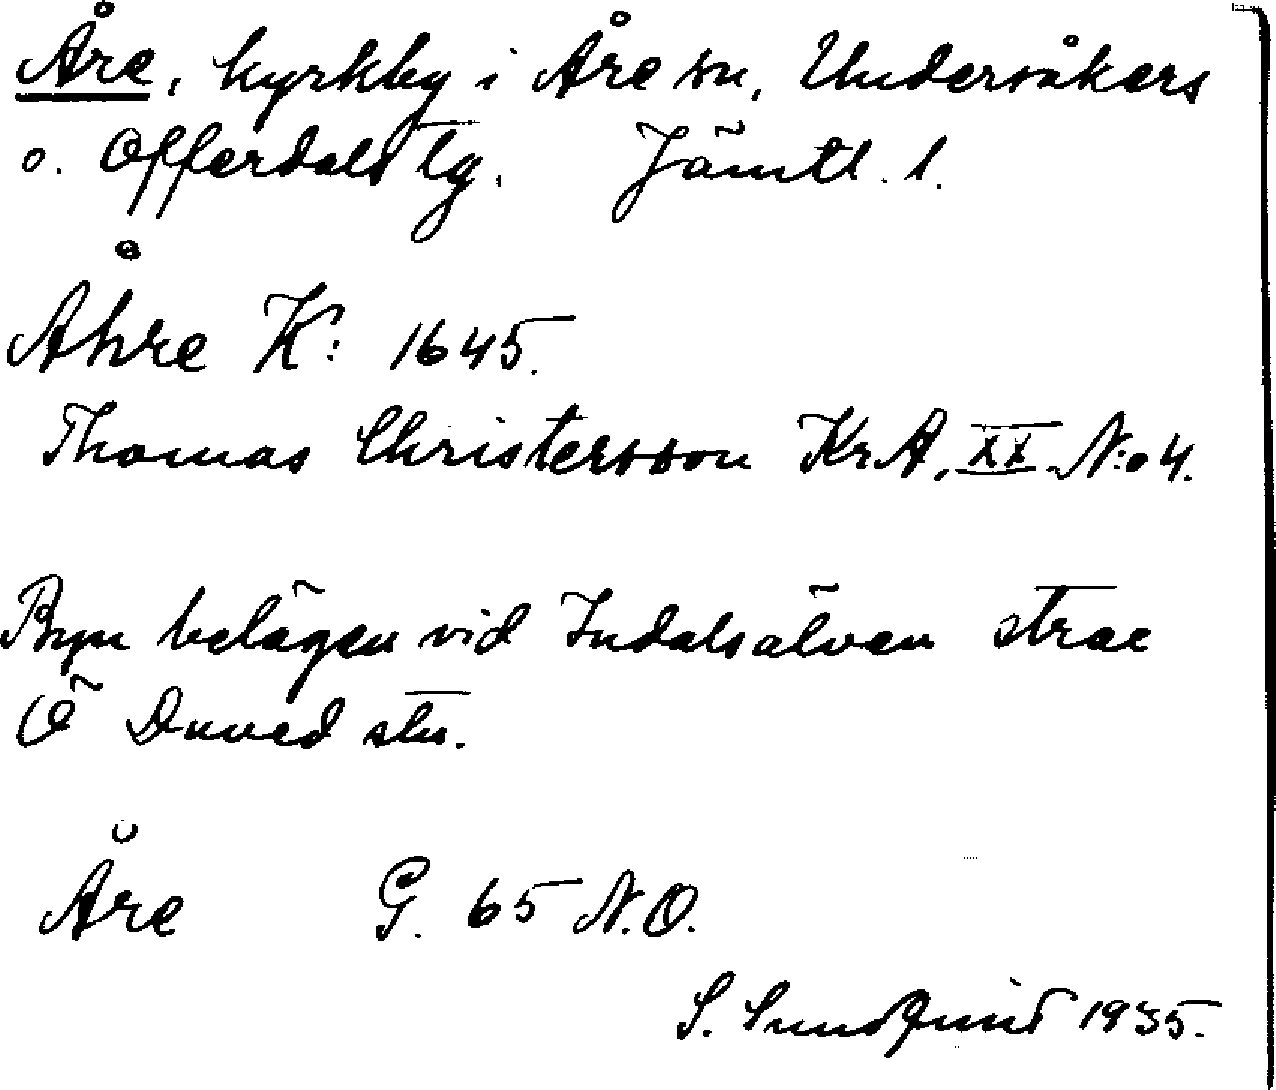 Åre, kyrkby i Åre sn, Undersåkers
o. Offerdals tg. Jämtl. l.
Åhre K: 1645.
Thomas Christersson KrA, XX N:o 4.
Byn belägen vid Indalsälven strax
Ö Duved stn.
Åre G. 65 N.O.
S. Sundqvist 1935.